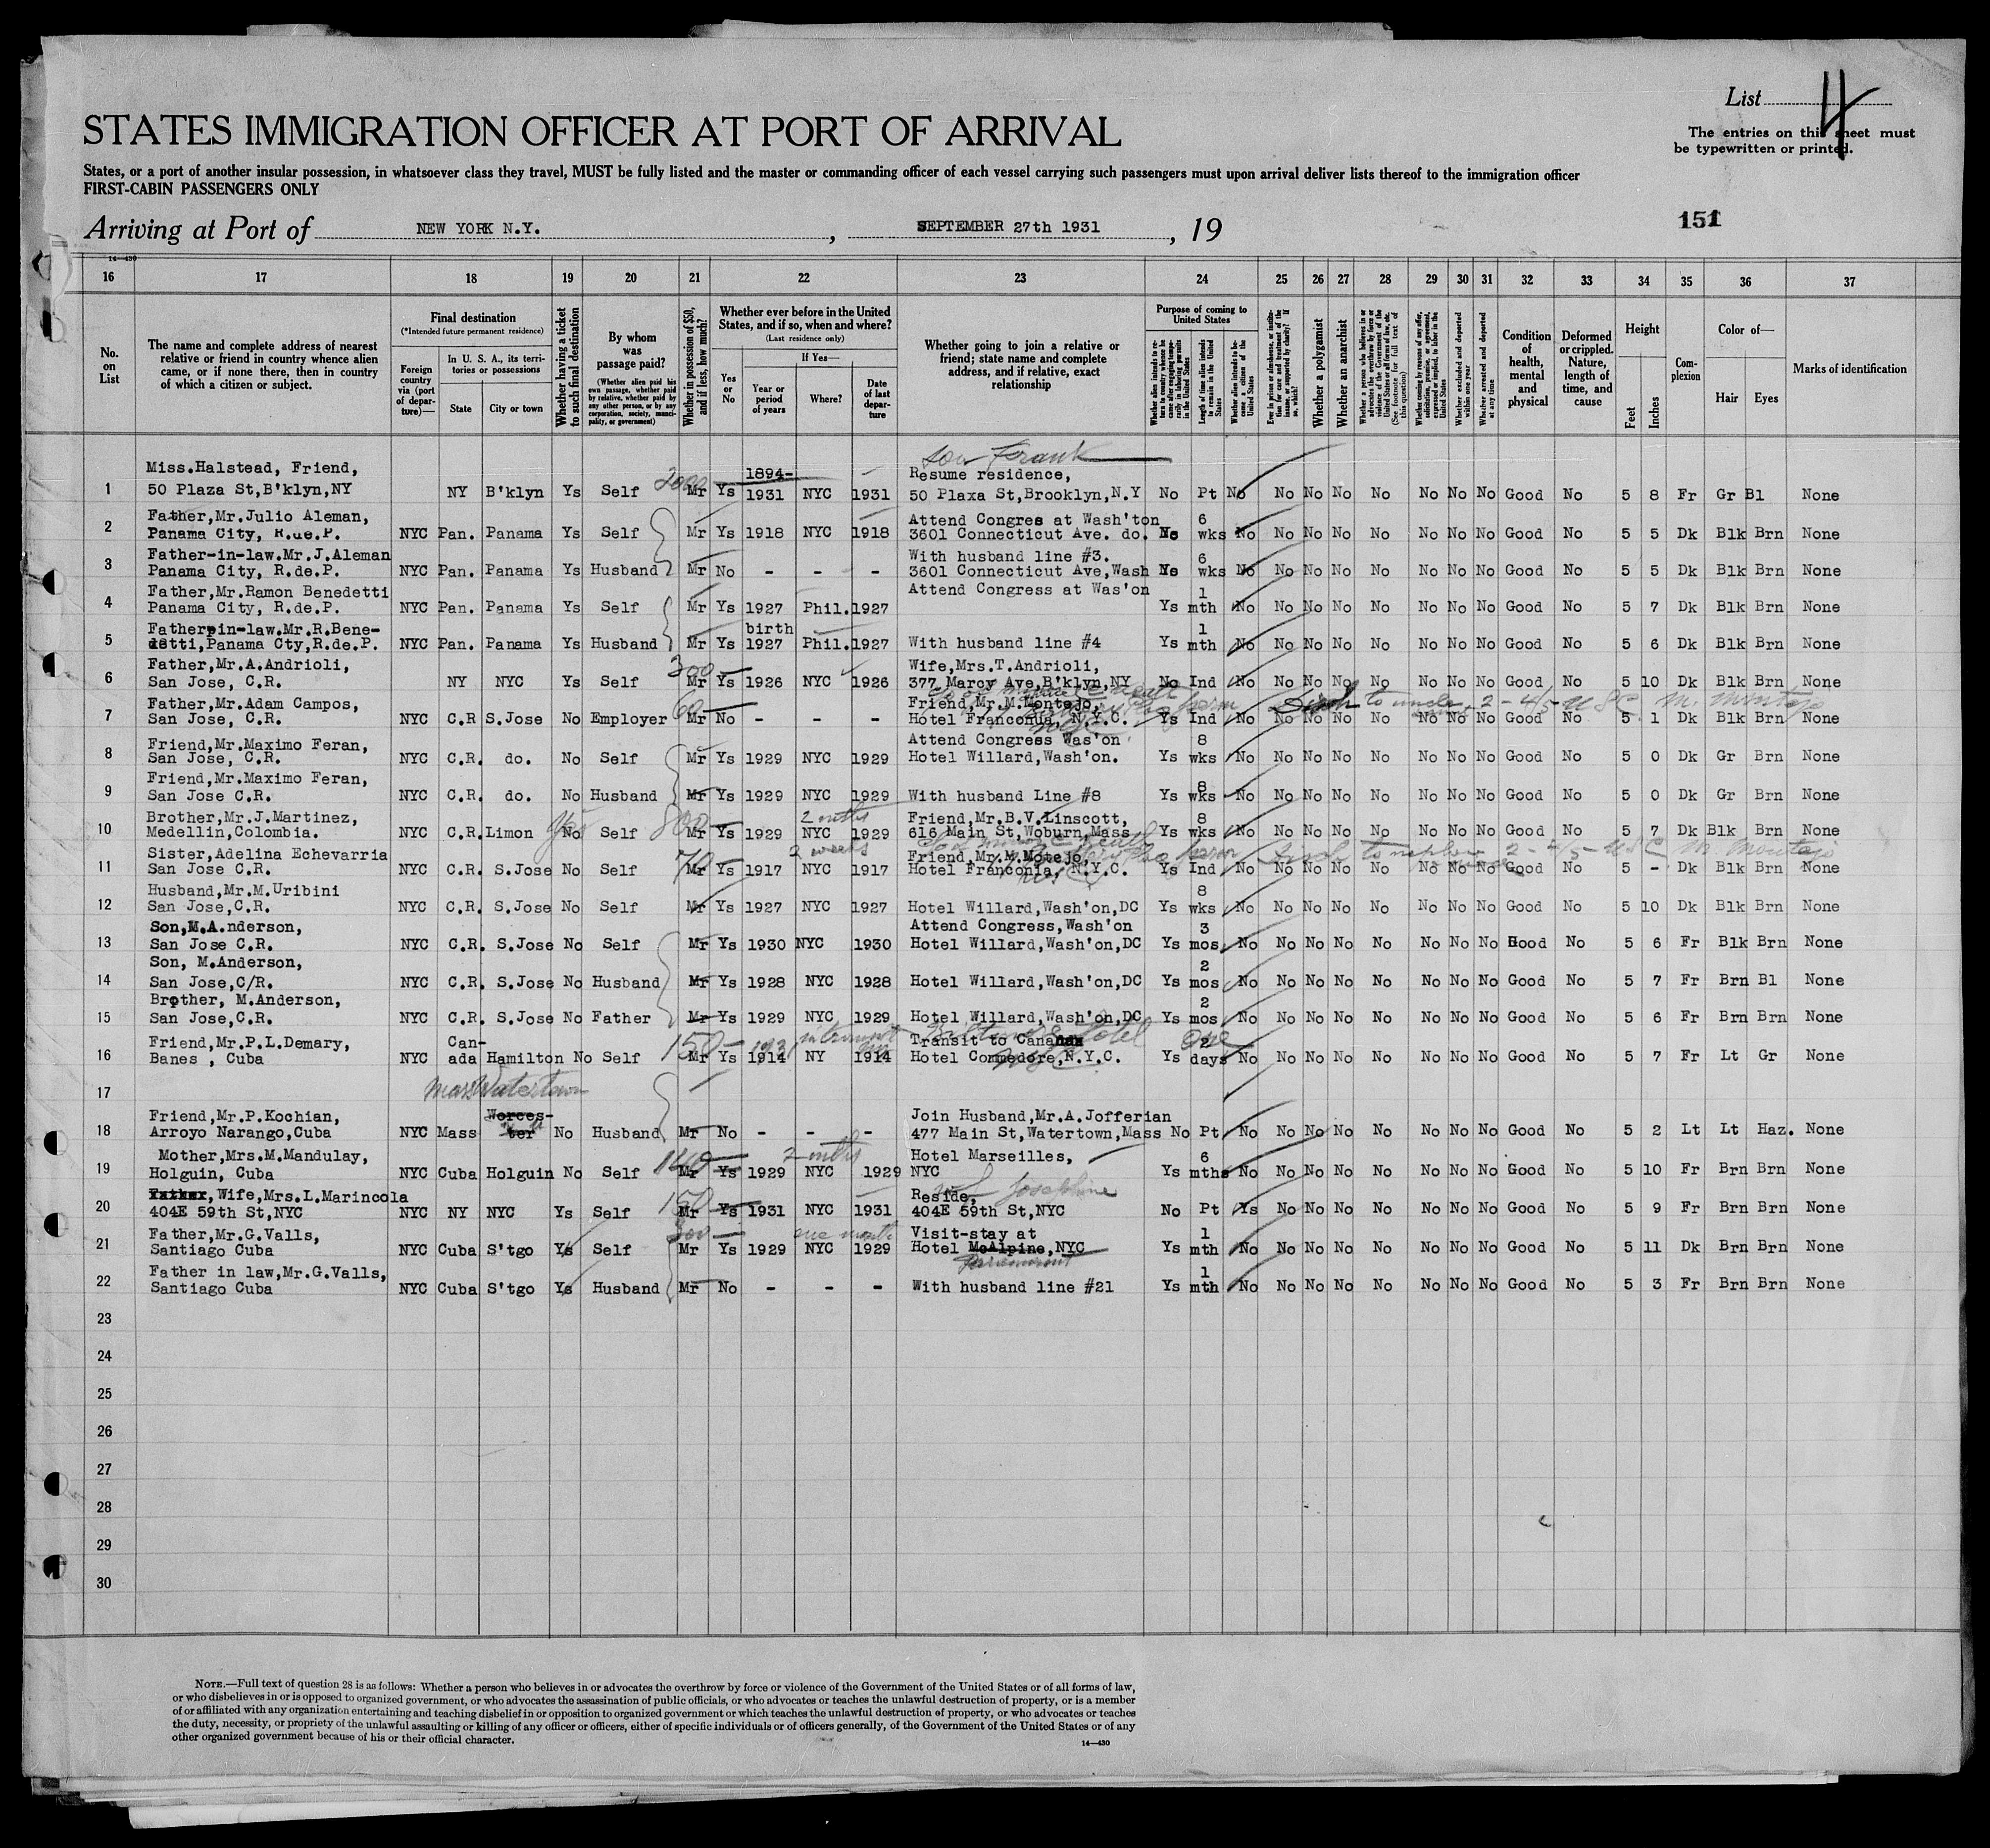 List 4
The entries on this sheet must
be typewritten or printed.
STATES IMMIGRATION OFFICER AT PORT OF ARRIVAL
States, or a port of another insular possession, in whatsoever class they travel, MUST be fully listed and the master or commanding officer of each vessel carrying such passengers must upon arrival deliver lists thereof to the immigration officer
FIRST-CABIN PASSENGERS ONLY
Arriving at Port of NEW YORK N.Y. , SEPTEMBER 27th 1931 , 19
151
14-430
16 17 18 19 20 21 22 23 24 25 26 27 28 29 30 31 32 33 34 35 36 37
No. on List
The name and complete address of nearest relative or friend in country whence alien came, or if none there, then in country of which a citizen or subject.
Final destination
(*Intended future permanent residence)
Foreign country via (port of departure)—
In U. S. A., its territories or possessions
State
City or town
Whether having a ticket to such final destination
By whom was passage paid?
(Whether alien paid his own passage, whether paid by relative, whether paid by any other person, or by any corporation, society, municipality, or government)
Whether in possession of $50, and if less, how much?
Whether ever before in the United States, and if so, when and where?
(Last residence only)
Yes or No
If Yes—
Year or period of years
Where?
Date of last departure
Whether going to join a relative or friend; state name and complete address, and if relative, exact relationship
Purpose of coming to United States
Length of time alien intends to remain in the United States
Whether alien intends to become a citizen of the United States
Whether a polygamist
Whether an anarchist
Whether excluded and deported within one year
Whether arrested and deported at any time
Condition of health, mental and physical
Deformed or crippled. Nature, length of time, and cause
Height
Feet
Inches
Complexion
Color of—
Hair
Eyes
Marks of identification
Son Frank
Miss.Halstead, Friend, 1894- Resume residence,
1 50 Plaza St,B'klyn,NY NY B'klyn Ys Self 2000 Mr Ys 1931 NYC 1931 50 Plaxa St,Brooklyn,N.Y No Pt No No No No No No No No Good No 5 8 Fr Gr Bl None
Father,Mr.Julio Aleman, Attend Congres at Wash'ton 6
2 Panama City, R.de.P. NYC Pan. Panama Ys Self Mr Ys 1918 NYC 1918 3601 Connecticut Ave. do. wks No No No No No No No No Good No 5 5 Dk Blk Brn None
Father-in-law.Mr.J.Aleman With husband line #3. 6
3 Panama City, R.de.P. NYC Pan. Panama Ys Husband Mr No - - - 3601 Connecticut Ave,Wash wks No No No No No No No No Good No 5 5 Dk Blk Brn None
Father,Mr.Ramon Benedetti Attend Congress at Was'on 1
4 Panama City, R.de.P. NYC Pan. Panama Ys Self Mr Ys 1927 Phil. 1927 Ys mth No No No No No No No No Good No 5 7 Dk Blk Brn None
Fatherpin-law.Mr.R.Bene- birth 1
5 detti,Panama Cty,R.de.P. NYC Pan. Panama Ys Husband Mr Ys 1927 Phil. 1927 With husband line #4 Ys mth No No No No No No No No Good No 5 6 Dk Blk Brn None
Father,Mr.A.Andrioli, 300 Wife,Mrs.T.Andrioli,
6 San Jose, C.R. NY NYC Ys Self Mr Ys 1926 NYC 1926 377 Marcy Ave,B'klyn,NY No Ind No No No No No No No No Good No 5 10 Dk Blk Brn None
Father,Mr.Adam Campos, 60 Friend,Mr.M.Montejo, to uncle 2-4/5- USC M. Montejo
7 San Jose, C.R. NYC C.R S.Jose No Employer Mr No - - - Hotel Franconia, N.Y.C. Ys Ind No No No No No No No No Good No 5 1 Dk Blk Brn None
Friend,Mr.Maximo Feran, Attend Congress Was'on 8
8 San Jose, C.R. NYC C.R. do. No Self Mr Ys 1929 NYC 1929 Hotel Willard,Wash'on. Ys wks No No No No No No No No Good No 5 0 Dk Gr Brn None
Friend,Mr.Maximo Feran, 8
9 San Jose C.R. NYC C.R. do. No Husband Mr Ys 1929 NYC 1929 With husband Line #8 Ys wks No No No No No No No No Good No 5 0 Dk Gr Brn None
Brother,Mr.J.Martinez, 800 2 mths Friend,Mr.B.V.Linscott, 8
10 Medellin,Colombia. NYC C.R. Limon Yes No Self Mr Ys 1929 NYC 1929 616 Main St,Woburn,Mass Ys wks No No No No No No No No Good No 5 7 Dk Blk Brn None
Sister,Adelina Echevarria 70 2 weeks Friend,Mr.M.Motejo, to nephew 2-4/5- USC M. Montejo
11 San Jose C.R. NYC C.R. S.Jose No Self Mr Ys 1917 NYC 1917 Hotel Franconia, N.Y.C. Ys Ind No No No No No No No No Good No 5 - Dk Blk Brn None
Husband,Mr.M.Uribini 8
12 San Jose,C.R. NYC C.R. S.Jose No Self Mr Ys 1927 NYC 1927 Hotel Willard,Wash'on,DC Ys wks No No No No No No No No Good No 5 10 Dk Blk Brn None
Son,M.A.nderson, Attend Congress,Wash'on 3
13 San Jose C.R. NYC C.R. S.Jose No Self Mr Ys 1930 NYC 1930 Hotel Willard,Wash'on,DC Ys mos. No No No No No No No No Good No 5 6 Fr Blk Brn None
Son, M.Anderson, 2
14 San Jose,C/R. NYC C.R. S.Jose No Husband Mr Ys 1928 NYC 1928 Hotel Willard,Wash'on,DC Ys mos. No No No No No No No No Good No 5 7 Fr Brn Bl None
Brother, M.Anderson, 2
15 San Jose,C.R. NYC C.R. S.Jose No Father Mr Ys 1929 NYC 1929 Hotel Willard,Wash'on,DC Ys mos. No No No No No No No No Good No 5 6 Fr Brn Brn None
Friend,Mr.P.L.Demary, Can- 150 in transit Biltmore Hotel Transit to Canada One 2
16 Banes , Cuba NYC ada Hamilton No Self Mr Ys 1914 NY 1914 Hotel Commedore,N.Y.C. Ys days No No No No No No No No Good No 5 7 Fr Lt Gr None
17 Mass Watertown
Friend,Mr.P.Kochian, Worces- Join Husband,Mr.A.Jofferian
18 Arroyo Narango,Cuba NYC Mass ter No Husband Mr No - - - 477 Main St,Watertown,Mass No Pt No No No No No No No No Good No 5 2 Lt Lt Haz. None
Mother,Mrs.M.Mandulay, 2 mths Hotel Marseilles, 6
19 Holguin, Cuba NYC Cuba Holguin No Self 1140 Mr Ys 1929 NYC 1929 NYC Ys mths No No No No No No No No Good No 5 10 Fr Brn Brn None
Father, Wife,Mrs.L.Marincola 150 Reside, Josephine
20 404E 59th St,NYC NYC NY NYC Ys Self Mr Ys 1931 NYC 1931 404E 59th St,NYC No Pt Ys No No No No No No No Good No 5 9 Fr Brn Brn None
Father,Mr.G.Valls, 300 one month Visit-stay at 1
21 Santiago Cuba NYC Cuba S'tgo Ys Self Mr Ys 1929 NYC 1929 Hotel McAlpine,NYC Paramount Ys mth No No No No No No No No Good No 5 11 Dk Brn Brn None
Father in law,Mr.G.Valls, 1
22 Santiago Cuba NYC Cuba S'tgo Ys Husband Mr No - - - With husband line #21 Ys mth No No No No No No No No Good No 5 3 Fr Brn Brn None
23
24
25
26
27
28
29
30
NOTE.—Full text of question 28 is as follows: Whether a person who believes in or advocates the overthrow by force or violence of the Government of the United States or of all forms of law,
or who disbelieves in or is opposed to organized government, or who advocates the assassination of public officials, or who advocates or teaches the unlawful destruction of property, or is a member
of or affiliated with any organization entertaining and teaching disbelief in or opposition to organized government or which teaches the unlawful destruction of property, or who advocates or teaches
the duty, necessity, or propriety of the unlawful assaulting or killing of any officer or officers, either of specific individuals or of officers generally, of the Government of the United States or of any
other organized government because of his or their official character.
14—430